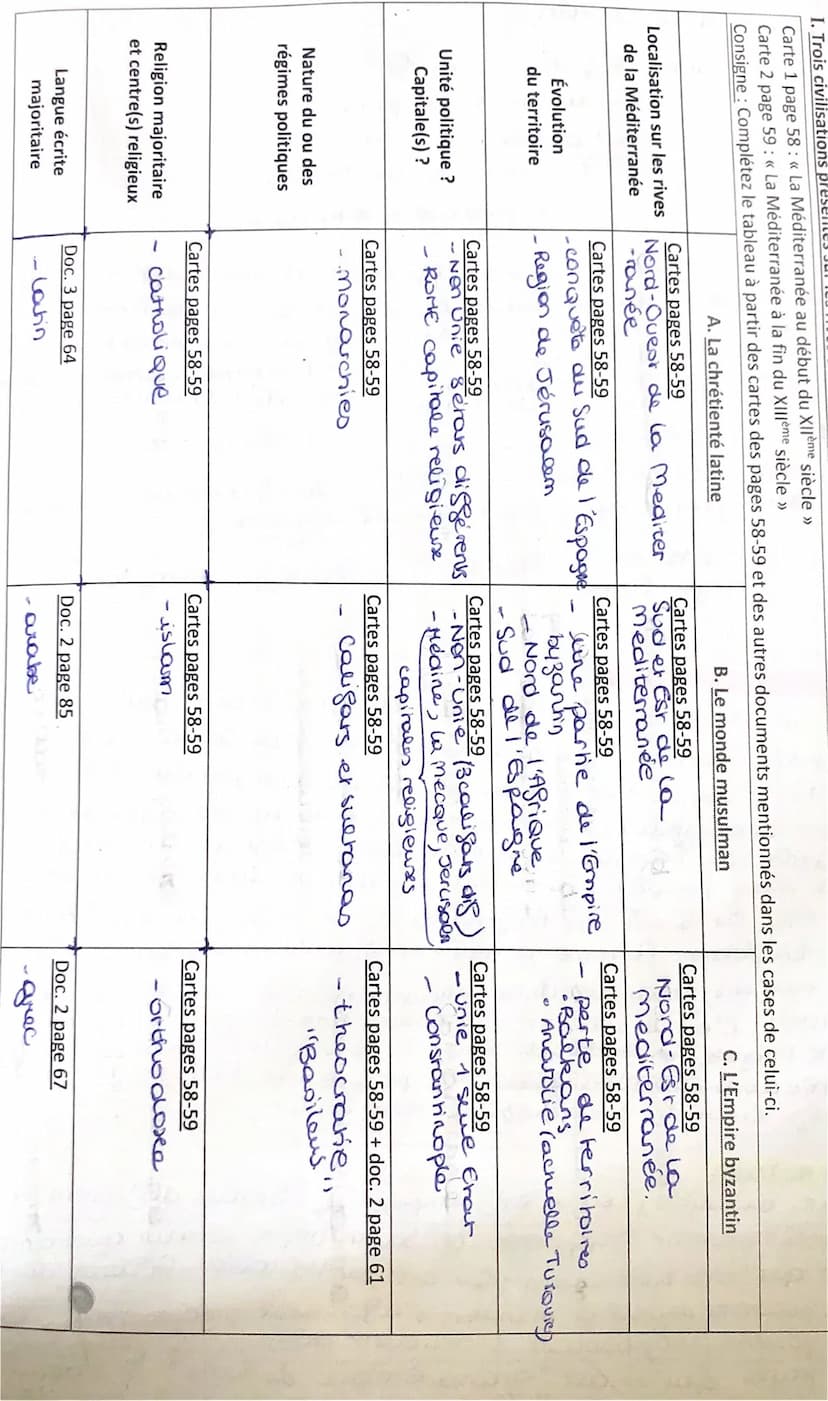 I. Trois civilisations
Carte 1 page 58 : « La Méditerranée au début du XIIème siècle »
Carte 2 page 59 : « La Méditerranée à la fin du XIIIème siècle »
Consigne : Complétez le tableau à partir des cartes des pages 58-59 et des autres documents mentionnés dans les cases de celui-ci.
A. La chrétienté latine
B. Le monde musulman
C. L'Empire byzantin
Localisation sur les rives
de la Méditerranée
Cartes pages 58-59
Nord-Ouest de la Mediter
-ranée
Cartes pages 58-59
Sud et Est de la
Mediterranée
Cartes pages 58-59
Nord-Est de la
Mediterranée.
Évolution
du territoire
Cartes pages 58-59
- conquête du Sud de l'Espagne
- Region de Jérusalem
Cartes pages 58-59
- Une partie de l'Empire
byzantin
- Nord de l'Afrique
- Sud de l'Espagne
Cartes pages 58-59
- perte de territoires
• Balkans
• Anatolie (actuelle Turquie)
Unité politique ?
Capitale(s) ?
Cartes pages 58-59
- Non Unie états différents
- ROME capitale religieuse
Cartes pages 58-59
- Non-Unie (3 califats dif)
- Médine, la mecque, Jerusalem
capitales religieuses
Cartes pages 58-59
- Unie 1 seul Etat
- Constantinople
Nature du ou des
régimes politiques
Cartes pages 58-59
- Monarchies
Cartes pages 58-59
- Califats et sultanas
Cartes pages 58-59 + doc. 2 page 61
- théocratie
"Basileus"
Religion majoritaire
et centre(s) religieux
Cartes pages 58-59
- Catholique
Cartes pages 58-59
- islam
Cartes pages 58-59
- Orthodoxe
Langue écrite
majoritaire
Doc. 3 page 64
- Latin
Doc. 2 page 85
- arabe
Doc. 2 page 67
- grec